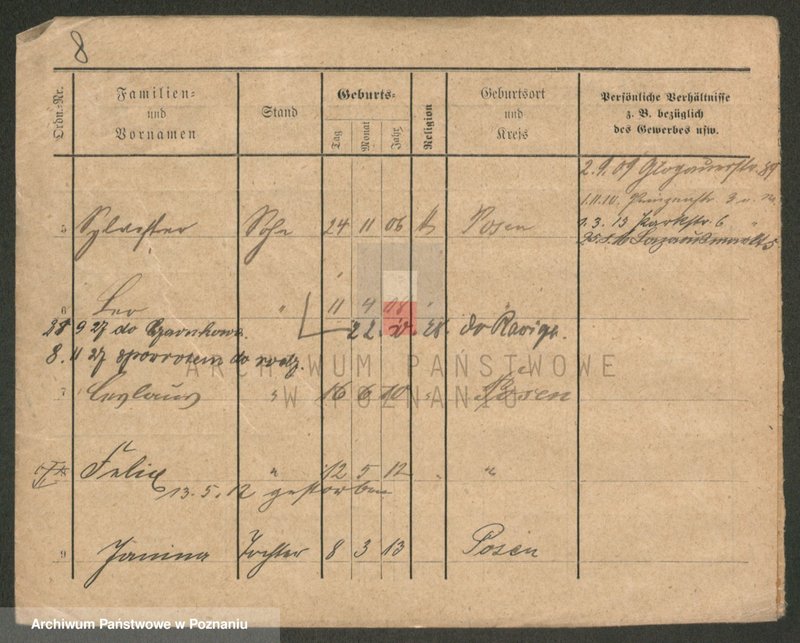 8
Ordn.-Nr.
Familien-
und
Vornamen
Stand
Geburts-
Tag
Monat
Jahr
Religion
Geburtsort
und
Kreis
Persönliche Verhältnisse
z. B. bezüglich
des Gewerbes usw.
2.9.09 Glogauerstr. 89
1.11.10.
1.3.13 Parkstr. 6
5 Sylvester Sohn 24 11 06 Posen
6 Leo " 11 4 08 "
28 9 27 do Czarnkowa. 22. 28. do
8. 11 27 spowrotem do rodz.
ARCHIWUM PAŃSTWOWE
W POZNANIU
7 Ceslaus " 16 6 10 " Posen
Felix " 12 5 12 " "
13. 5. 12 gestorben
9 Janina Tochter 8 3 13 Posen
Archiwum Państwowe w Poznaniu